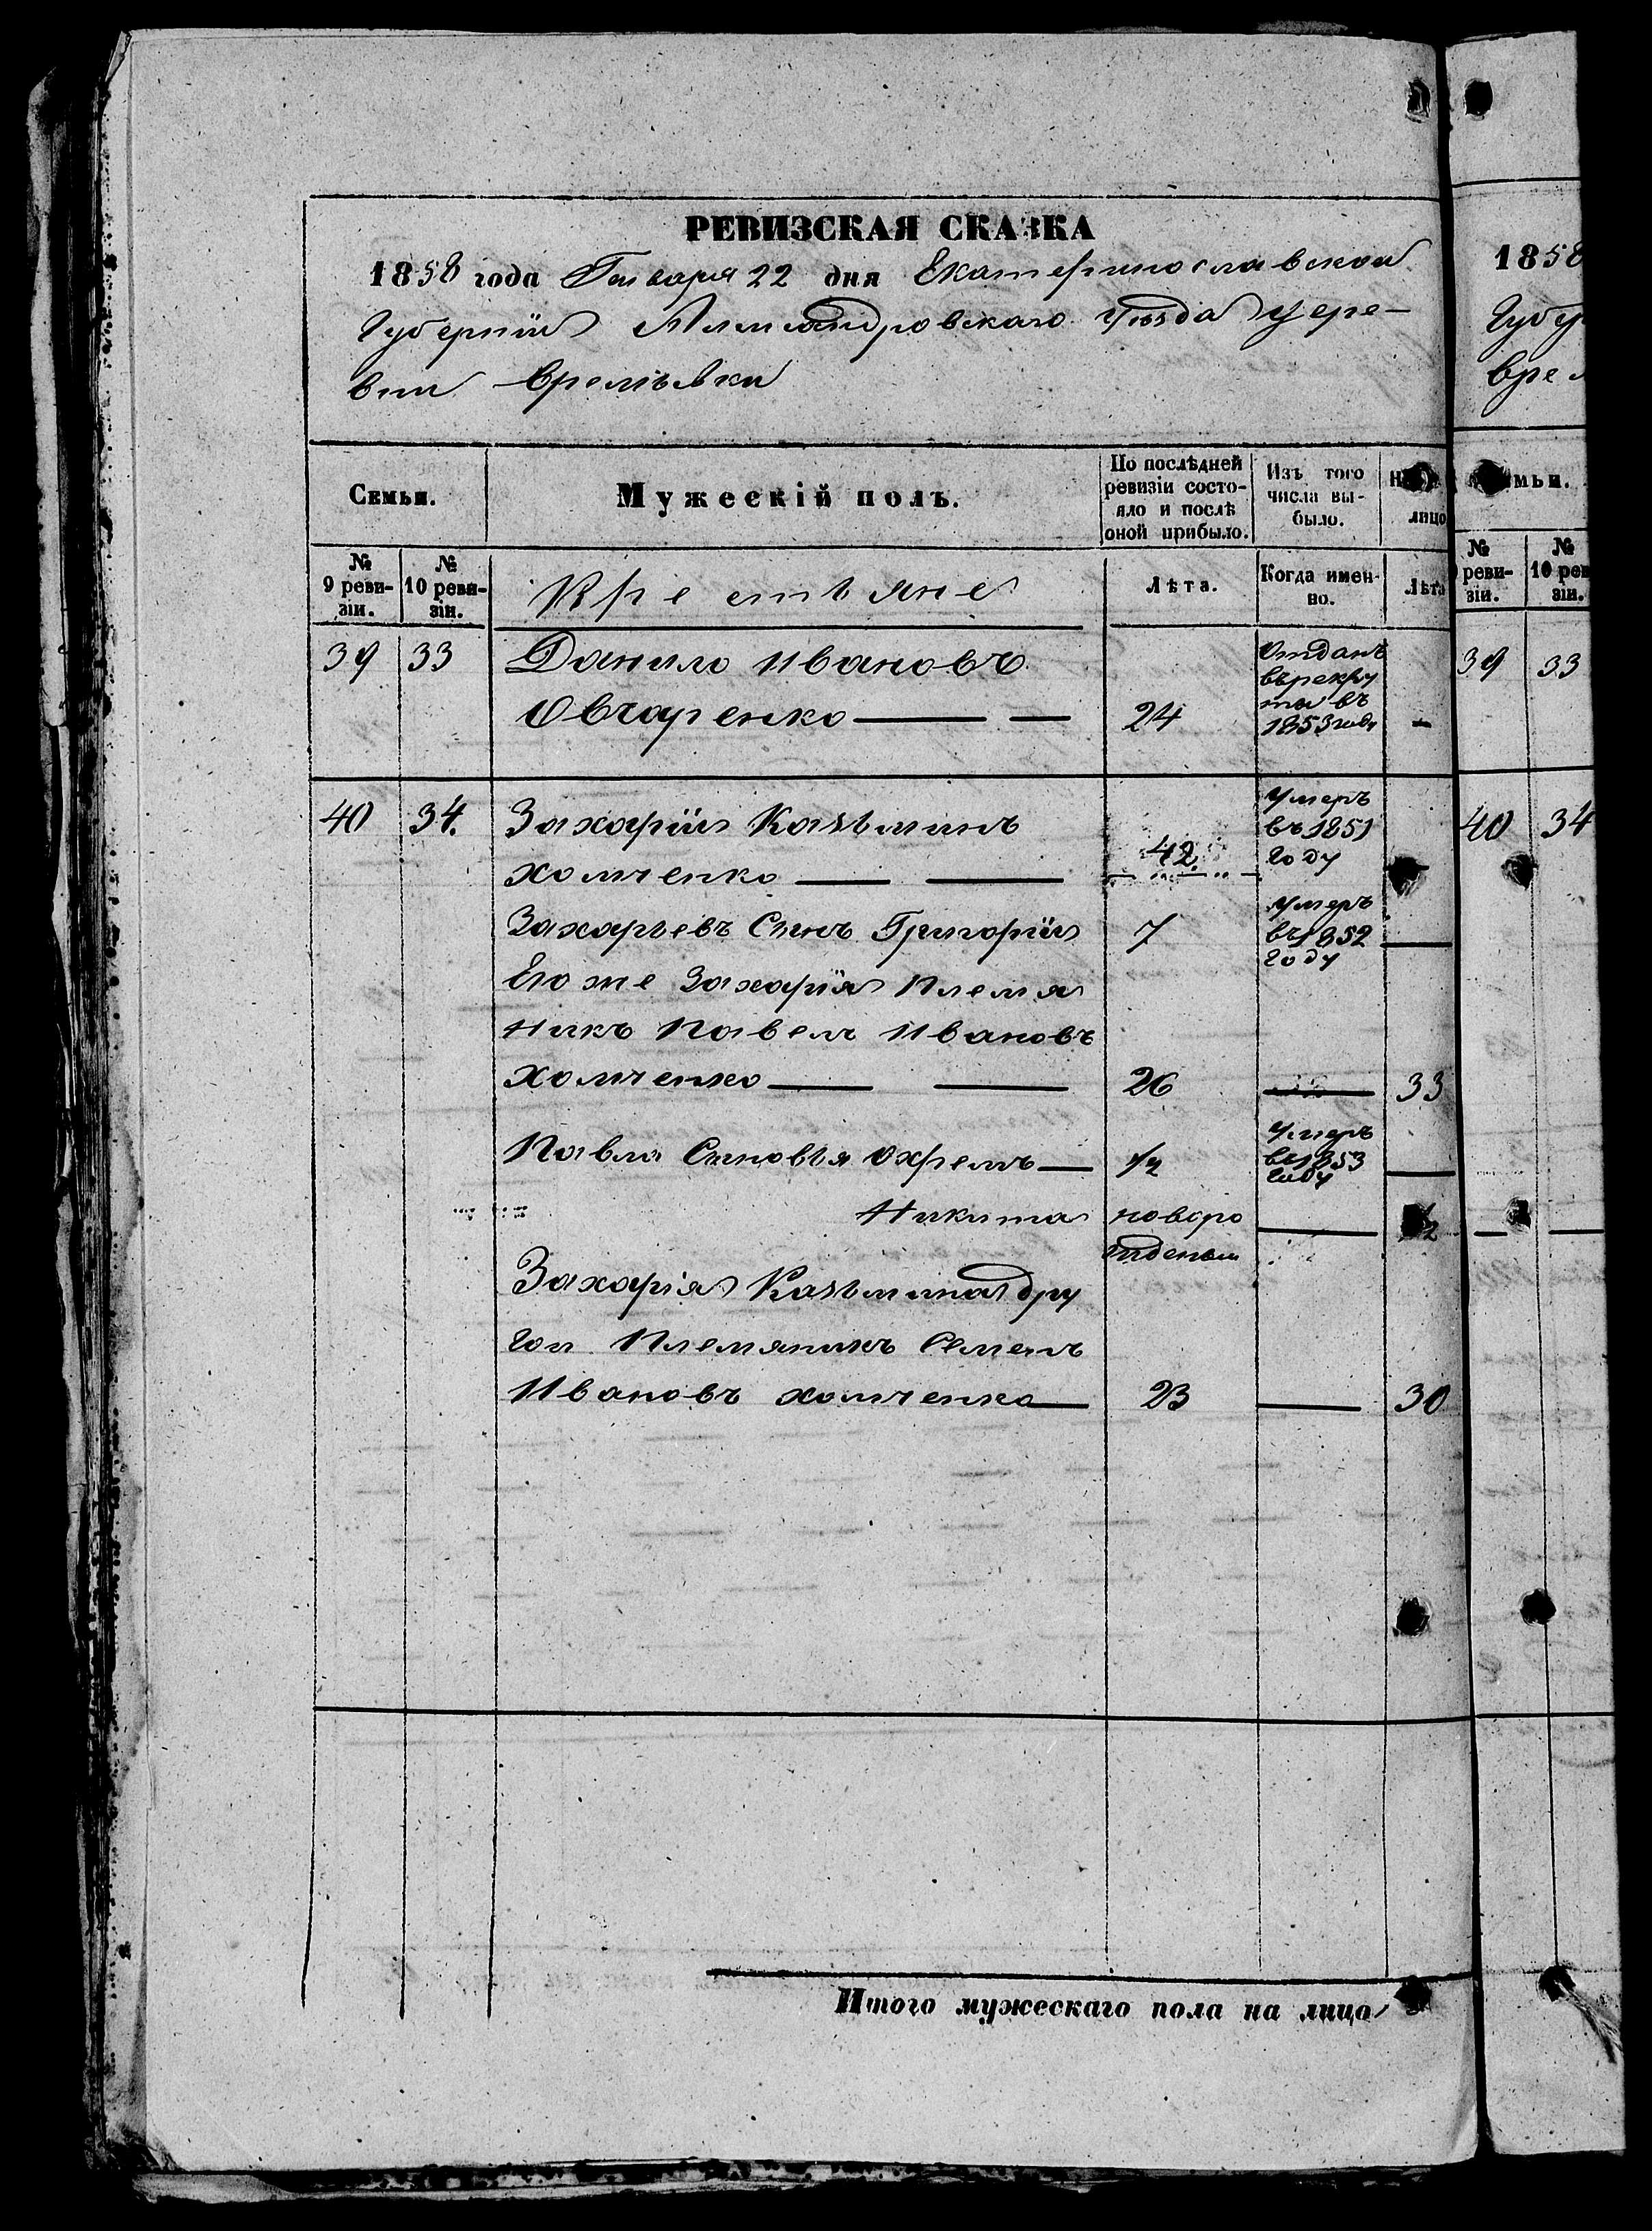 РЕВИЗСКАЯ СКАЗКА
1858 года Генваря 22 дня Екатеринославской
Губернiи Александровскаго уѣзда дере-
вни Времѣвки
Семьи.
Мужескiй полъ.
По послѣдней
ревизiи состо-
яло и послѣ
оной прибыло.
Изъ того
числа вы-
было.
лицо
№
9 реви-
зiи.
№
10 реви-
зiи.
Крестьяне
Лѣта.
Когда имен-
но.
Лѣта
39 33 Данило Ивановъ
Овчаренко — — 24
Отданъ
въ рекру
ты въ
1853 году
—
40 34. Захарiй Казьминъ
Хомченко — — 42.
Умеръ
въ 1851
году
Захарьевъ Сынъ Григорiй 7
Умеръ
въ 1852
году
—
Его же Захарiя Племя
никъ Павелъ Ивановъ
Хомченко — — 26 — 33
Павла Сыновья Охремъ — 1/2
Умеръ
въ 1853
году
—
Никита новоро
жденый
—
Захарiя Казьмина дру
гой Племяникъ Семенъ
Ивановъ Хомченко — 23 — 30
Итого мужескаго пола на лицо
1858
Губер
Врем
мьи.
№
реви-
зiи.
№
10 рев
зiи.
39 33
40 34